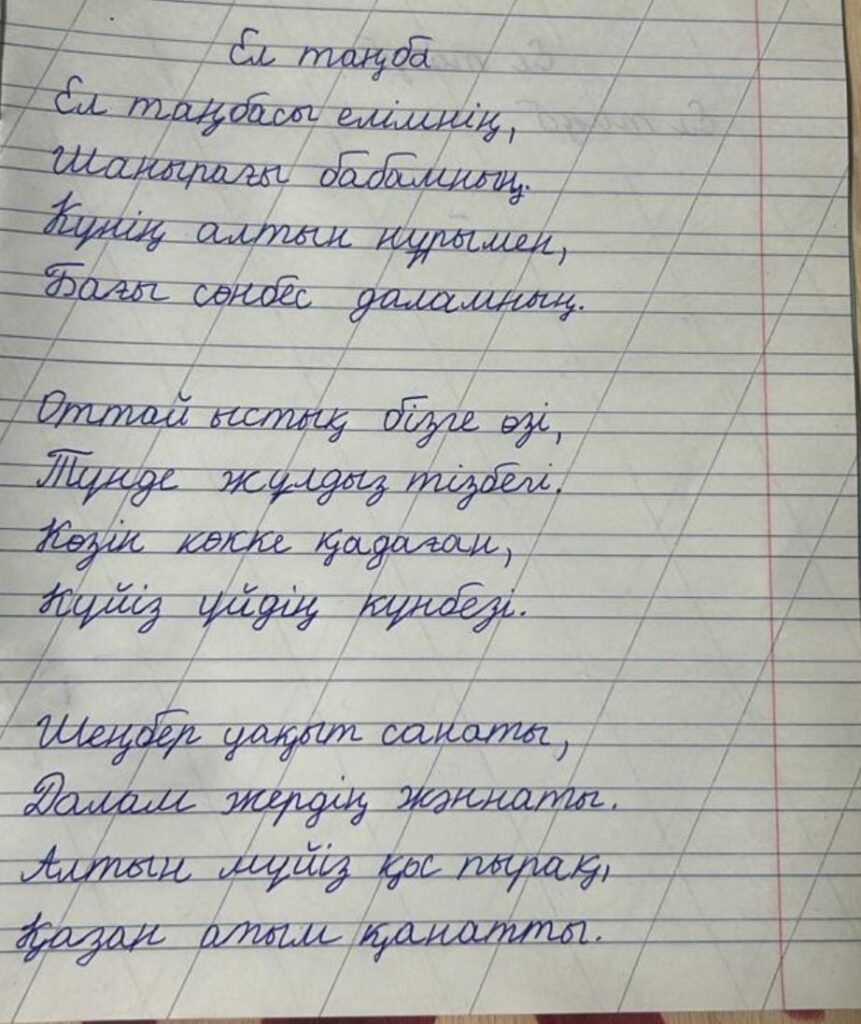 Ел таңба
Ел таңбасы елімнің,
Шанырағы бабамның.
Күнің алтын нұрымен,
Бағы сөнбес даламның.
Оттай ыстық бізге өзі,
Түнде жұлдыз тізбегі.
Көзін көкке қадаған,
Күйіз үйдің күнбезі.
Шеңбер уақыт санаты,
Далам жердің жәннаты.
Алтын мүйіз қос пырақ,
Қазан атым қанатты.